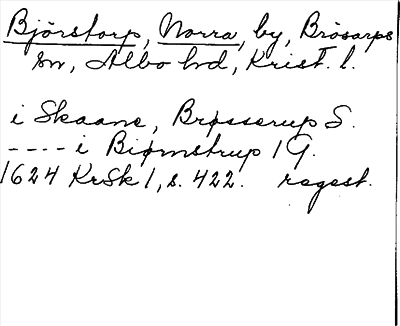 Björstorp, Norra, by, Brösarps
sn, Albo hd, Krist. l.
i Skaane, Brøsserup S.
---- i Biørnstrup 1 G.
1624 KrSk 1, s. 422. regest.